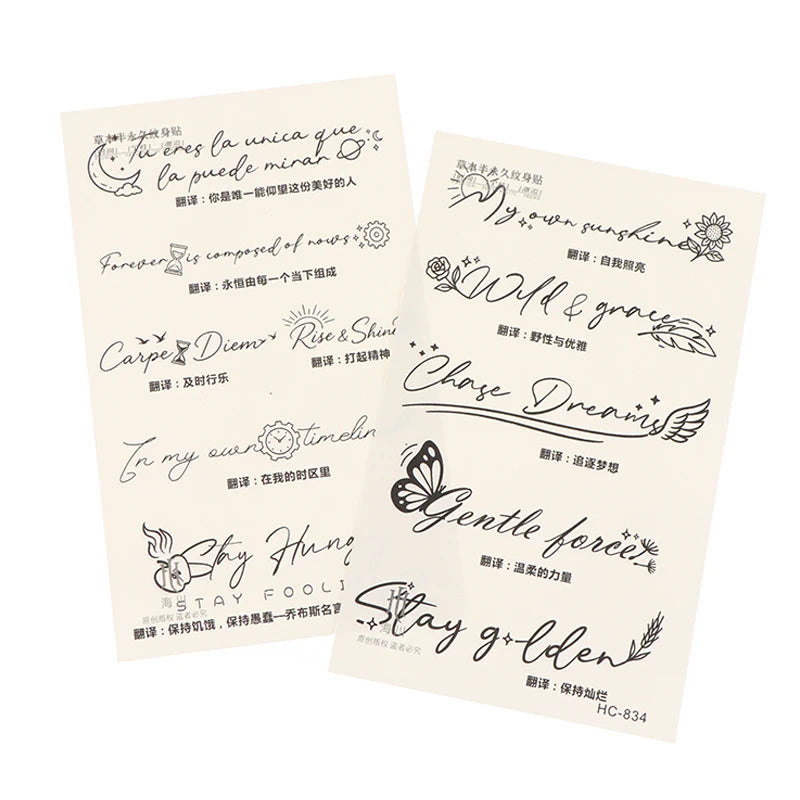 草本半永久纹身贴
Tu eres la unica que
la puede mirar
翻译：你是唯一能仰望这份美好的人
Forever is composed of nows
翻译：永恒由每一个当下组成
Carpe Diem
翻译：及时行乐
Rise & Shine
翻译：打起精神
In my own timelin
翻译：在我的时区里
Stay Hung
STAY FOOLI
海
原创版权 盗者必究
翻译：保持饥饿，保持愚蠢--乔布斯名言
草本半永久纹身贴
My own sunshine
翻译：自我照亮
Wild & grace
翻译：野性与优雅
Chase Dreams
翻译：追逐梦想
Gentle force
翻译：温柔的力量
Stay golden
海
原创版权 盗者必究
翻译：保持灿烂
HC-834